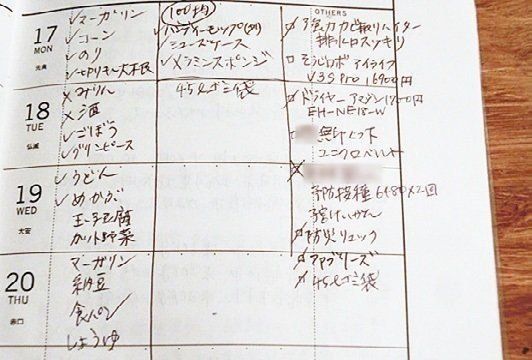 17
MON
先負
マーガリン
コーン
のり
切りもち大不良
18
TUE
仏滅
みりん
酒
ごぼう
グリンピース
19
WED
大安
うどん
めかぶ
玉子豆腐
カット野菜
20
THU
赤口
マーガリン
納豆
食パン
しょうゆ
100均
ハンディーモップ
シューズケース
メラミンスポンジ
45ℓゴミ袋
OTHERS
強力カビ取りハイター
排水口スッキリ
そうじロボ アイライフ
V3S Pro 16900円
ドライヤー アマゾン
EH-NE18-W
無印
ユニクロベルト
予防接種 6480×2回
防災リュック
ファブリーズ
45ℓゴミ袋